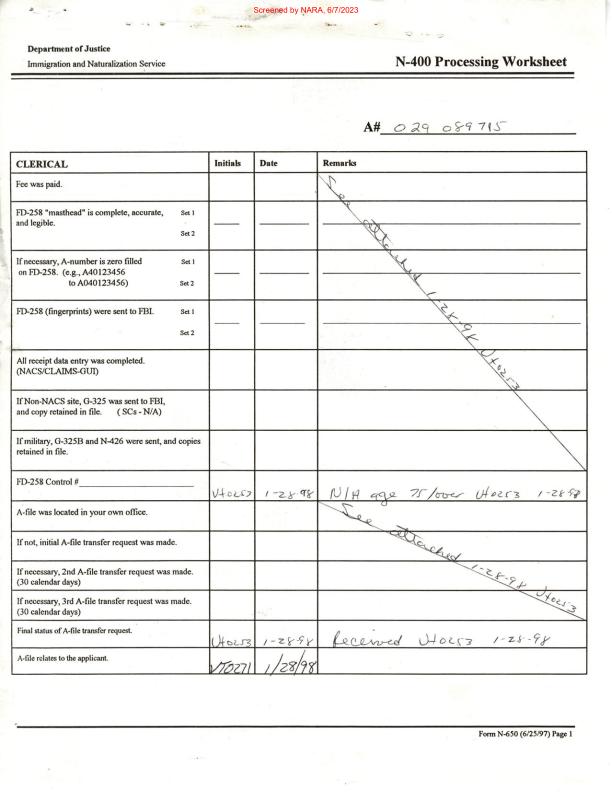 Screened by NARA, 6/7/2023
Department of Justice
Immigration and Naturalization Service
N-400 Processing Worksheet
A# 029 089715
CLERICAL Initials Date Remarks
Fee was paid.
See attached 1-28-98 Vt0253
FD-258 "masthead" is complete, accurate, Set 1
and legible.
Set 2
If necessary, A-number is zero filled Set 1
on FD-258. (e.g., A40123456
to A040123456) Set 2
FD-258 (fingerprints) were sent to FBI. Set 1
Set 2
All receipt data entry was completed.
(NACS/CLAIMS-GUI)
If Non-NACS site, G-325 was sent to FBI,
and copy retained in file. ( SCs - N/A)
If military, G-325B and N-426 were sent, and copies
retained in file.
FD-258 Control #
Vt0253 1-28-98 N/A age 75/over Vt0253 1-28-98
A-file was located in your own office.
See attached 1-28-98 Vt0253
If not, initial A-file transfer request was made.
If necessary, 2nd A-file transfer request was made.
(30 calendar days)
If necessary, 3rd A-file transfer request was made.
(30 calendar days)
Final status of A-file transfer request.
Vt0253 1-28-98 Received Vt0253 1-28-98
A-file relates to the applicant.
VT0271 1/28/98
Form N-650 (6/25/97) Page 1